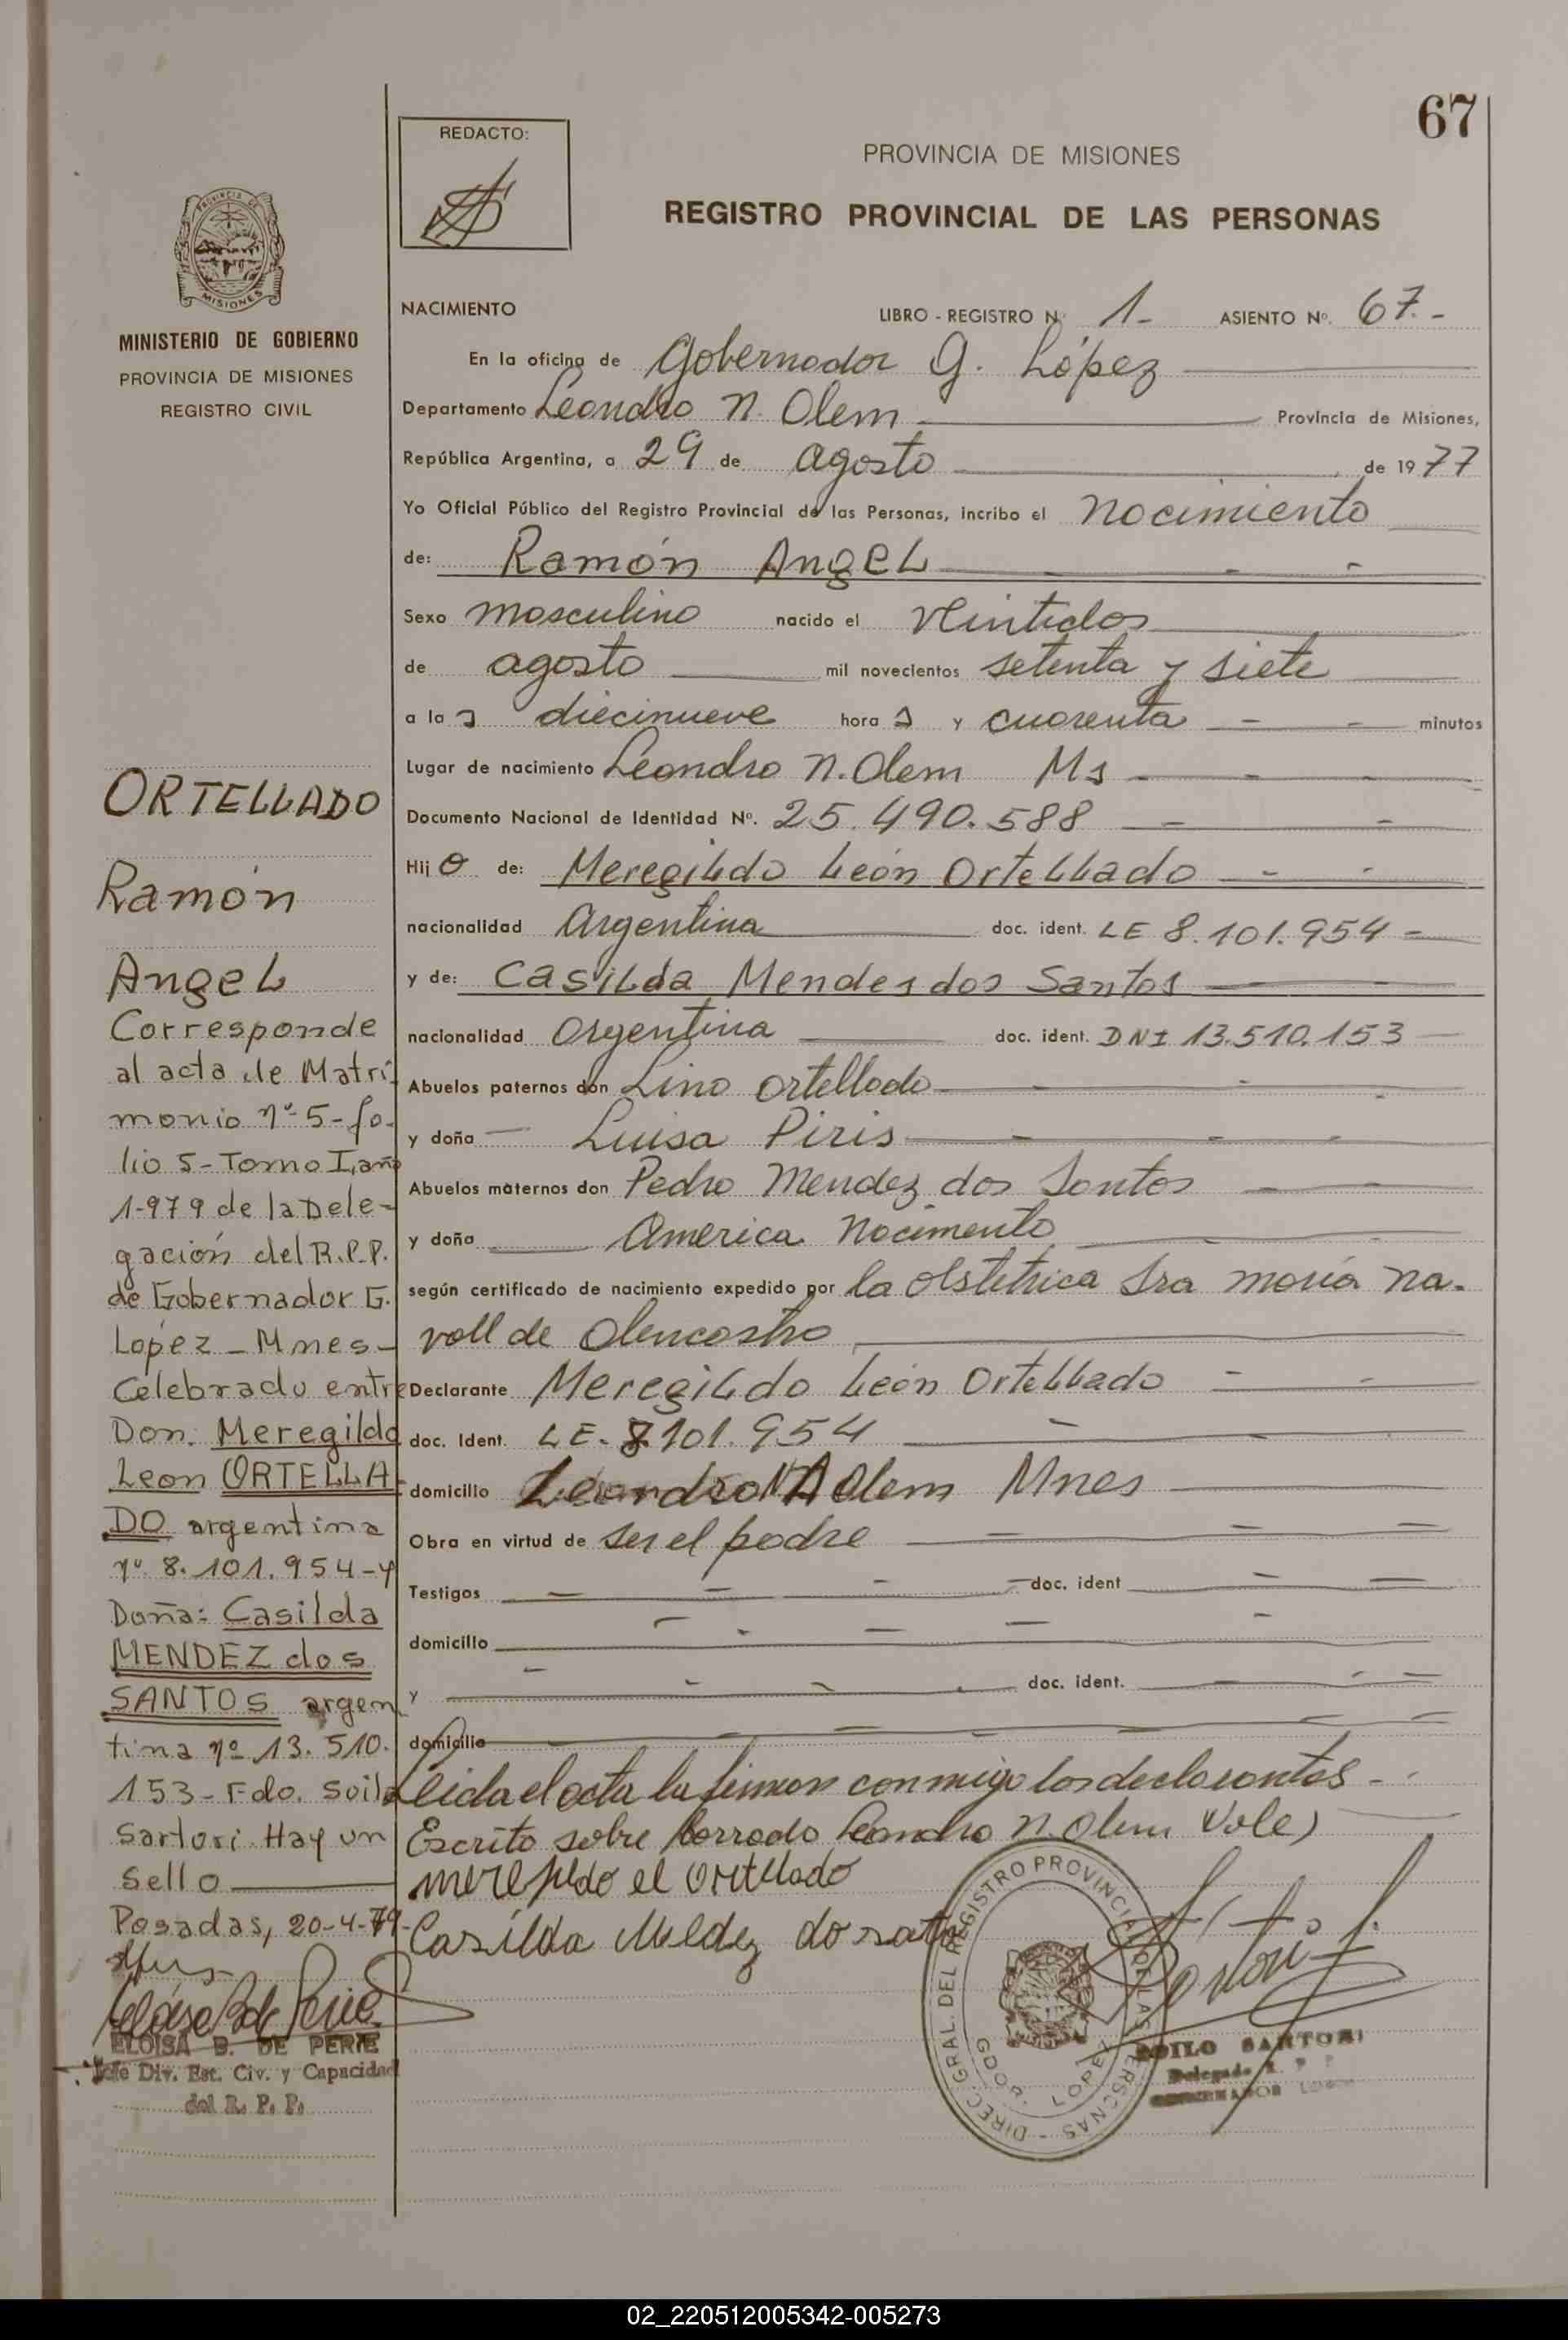 67
REDACTO:
PROVINCIA DE MISIONES
REGISTRO PROVINCIAL DE LAS PERSONAS
MISIONES
MINISTERIO DE GOBIERNO
PROVINCIA DE MISIONES
REGISTRO CIVIL
NACIMIENTO LIBRO - REGISTRO Nº 1.- ASIENTO Nº. 67.-
En la oficina de Gobernador G. López
Departamento Leandro N. Alem Provincia de Misiones,
República Argentina, a 29 de agosto de 1977
Yo Oficial Público del Registro Provincial de las Personas, incribo el Nacimiento
de: Ramón AngeL
Sexo masculino nacido el veintidos
de agosto mil novecientos setenta y siete
a las diecinueve horas y cuarenta minutos
Lugar de nacimiento Leandro N. Alem Ms
Documento Nacional de Identidad Nº. 25.490.588
Hijo de: MeregiLdo León OrteLLado
nacionalidad Argentina doc. ident. LE 8.101.954
y de: CasiLda Mendes dos Santos
nacionalidad Argentina doc. ident. DNI 13.510.153
Abuelos paternos don Lino Ortellado
y doña Luisa Piris
Abuelos maternos don Pedro Mendez dos Santos
y doña America Nacimento
según certificado de nacimiento expedido por la Obstetrica Sra María Na-
voll de Alencastro
Declarante MeregiLdo León OrteLLado
doc. Ident. LE. 8.101.954
domicilio Leandro N Alem Mnes
Obra en virtud de ser el padre
Testigos doc. ident
domicilio
y doc. ident.
domicilio
Leida el acta la firman conmigo los declarantes
Escrito sobre borrado Leandro N. Alem Vale)
el ortellado
Casilda do
ORTELLADO
Ramón
AngeL
Corresponde
al acta de Matri
monio nº 5-fo-
lio 5-Tomo I, año
1.979 de la Dele-
gación del R.P.P.
de Gobernador G.
López - Mnes-
Celebrado entre
Don: Meregildo
Leon ORTELLA-
DO argentina
nº 8.101.954-y
Doña: Casilda
MENDEZ dos
SANTOS argen
tina nº 13.510.
153- Fdo. Soilo
Sartori. Hay un
sello
Posadas, 20-4-79-
ELOISA B. DE PERIE
Jefe Div. Est. Civ. y Capacidad
del R. P. P.
DIREC. GRAL. DEL REGISTRO PROVINCIAL DE LAS PERSONAS
GOB. LOPEZ
SOILO SARTORI
Delegado R. P. P.
GOBERNADOR
02_220512005342-005273